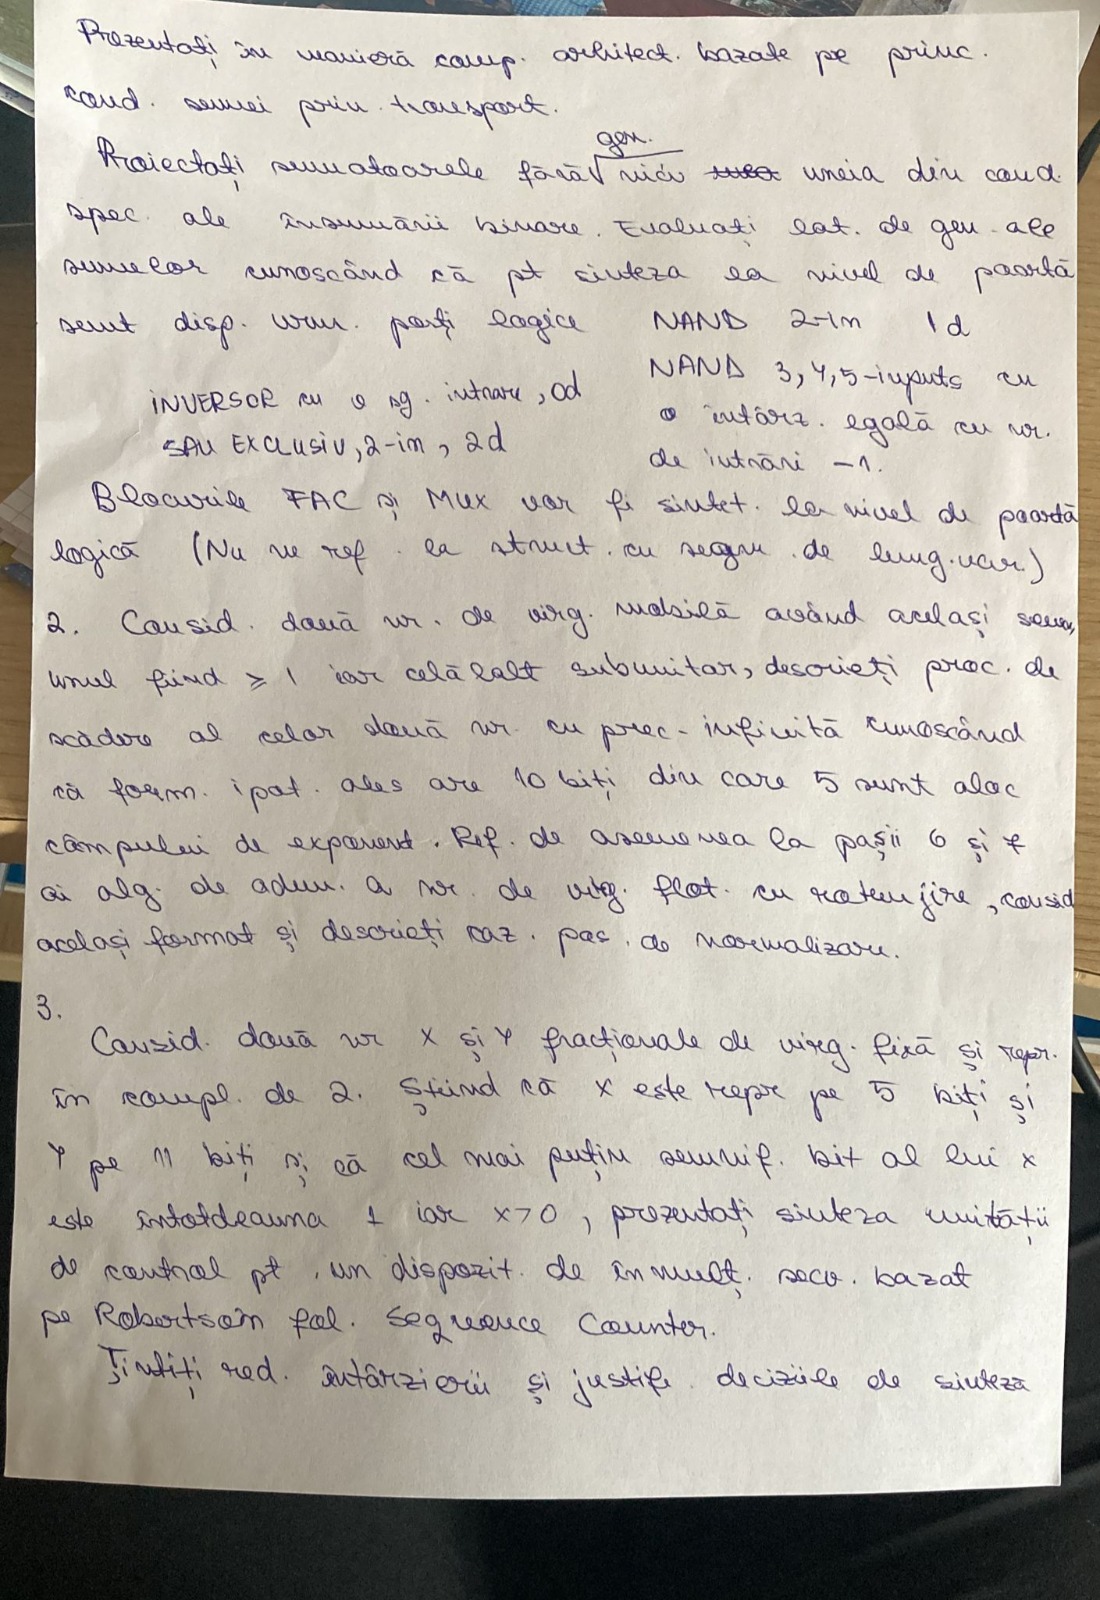 Prezentați în manieră comp. arhitect. bazate pe princ.
cond. sumei prin transport.
gen.
Proiectați sumatoarele fără √ nici uneia din cond.
spec. ale însumării binare. Evaluați lat. de gen. ale
sumelor cunoscând că pt sinteza la nivel de poartă
sunt disp. urm. porți logice NAND 2-in 1d
NAND 3,4,5-inputs cu
INVERSOR cu o sg. intrare, 0d
o întârz. egală cu nr.
SAU EXCLUSIV, 2-in, 2d
de intrări -1.
Blocurile FAC și MUX vor fi sintet. la nivel de poartă
logică (Nu ne ref. la struct. cu segm. de lung. var.)
2. Consid. două nr. de virg. mobilă având același semn,
unul fiind ≥ 1 iar celălalt subunitar, descrieți proc. de
scădere al celor două nr. cu prec. infinită cunoscând
că form. ipot. ales are 10 biți din care 5 sunt aloc
câmpului de exponent. Ref. de asemenea la pașii 6 și 7
ai alg. de adun. a nr. de virg. flot. cu rotunjire, consid
același format și descrieți caz. pas. de normalizare.
3.
Consid. două nr x și Y fracționale de virg. fixă și repr.
în compl. de 2. Știind că x este repr pe 5 biți și
Y pe 11 biți și că cel mai puțin semnif. bit al lui x
este întotdeauna 1 iar x>0, prezentați sinteza unității
de control pt. un dispozit. de înmulț. secv. bazat
pe Robertson fol. Sequence Counter.
Țintiți red. întârzierii și justif. deciziile de sinteză